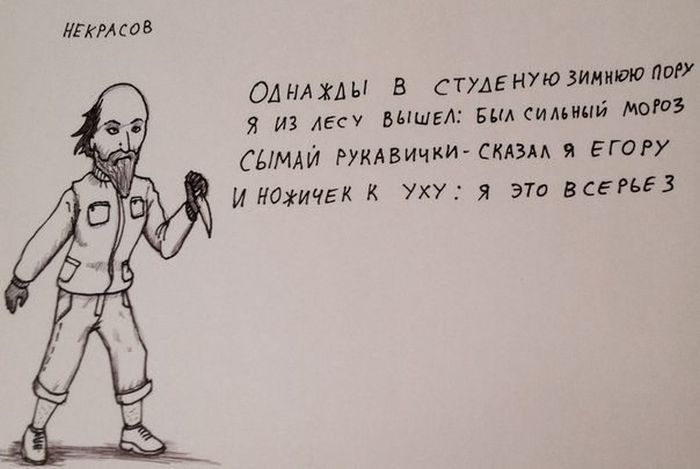 НЕКРАСОВ
ОДНАЖДЫ В СТУДЕНУЮ ЗИМНЮЮ ПОРУ
Я ИЗ ЛЕСУ ВЫШЕЛ: БЫЛ СИЛЬНЫЙ МОРОЗ
СЫМАЙ РУКАВИЧКИ - СКАЗАЛ Я ЕГОРУ
И НОЖИЧЕК К УХУ: Я ЭТО ВСЕРЬЕЗ